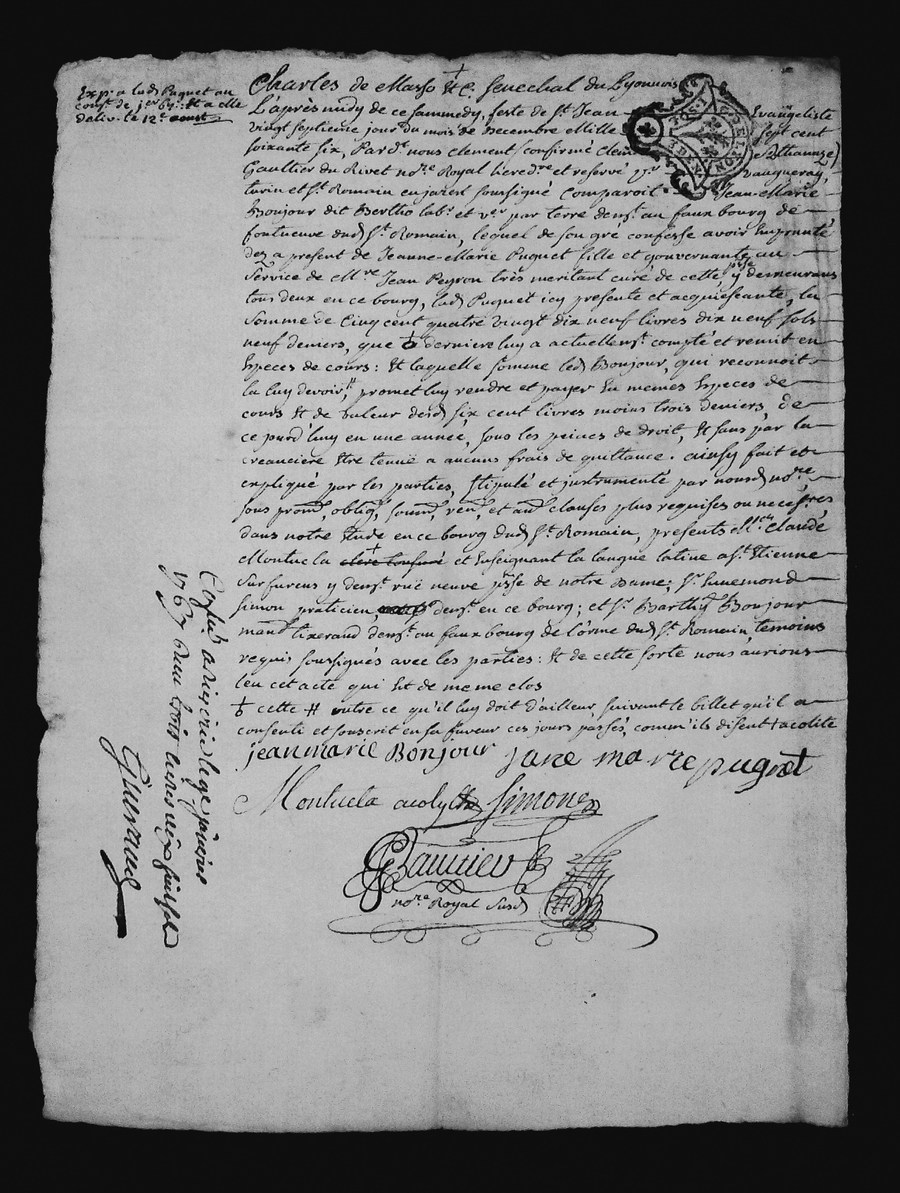 Exp. a lad Puguet au
cons. de jer 67: Et a elle
deliv. le 12e aoust
Charles de Masso &c. Senechal du Lyonnois
L'après midy de ce sammedy, feste de St. Jean Evangeliste
vingt septieme jour du mois de Decembre Mille sept cent
soixante six, Pard.t nous clement confirmé
Gaultier du Rivet no.re Royal hered.re et reservé p.r vaugneray,
turin et St. Romain en jarest soussigné Comparoit Jean-Marie
Bonjour dit Bertho lab.r et v.er par terre dem.t au faux bourg de
fontneuve dud St. Romain, lequel de son gré confesse avoir Emprunté
dez a present de Jeanne-Marie Puguet fille et gouvernante au
Service de M.re Jean Peyron très meritant curé de cette p.sse y demeurans
tous deux en ce bourg, lad Puguet icy presente et acquiesçante, la
somme de Cinq cent quatre vingt dix neuf livres dix neuf sols
neuf deniers, que ‡ derniere luy a actuellem.t compté et remit en
Especes de cours: Et laquelle somme led Bonjour, qui reconnoit
la luy devoir #, promet luy rendre et payer En memes Especes de
cours Et de valeur desd six cent livres moins trois deniers, de
ce jourd'huy en une année, sous les peines de droit, Et sans par la
creanciere Etre tenuë a aucuns frais de quittance. ainsy fait et
expliqué par les parties, stipulé et instrumenté par nousd no.re,
sous prom, oblig, soum, ren, et au clauses plus requises ou necess.res
dans notre Etude en ce bourg dud St. Romain, presents M.re Claude
Montucla clerc tonsuré + et Enseignant la langue latine a St. Etienne
Sur furens y dem.t ruë neuve p.sse de notre Dame; Sr. Ennemond
Simon praticien, dem.t en ce bourg; et Sr. Barthly Bonjour
man tixerand dem.t au faux bourg de l'orme dud St. Romain, temoins
requis soussignés avec les parties: Et de cette sorte nous aurions
leu cet acte qui Est de meme clos
‡ cette # outre ce qu'il luy doit d'ailleur suivant le billet qu'il a
consenti et souscrit en sa faveur ces jours passés, comm'ils disent + acolite
jean marie Bonjour jane marie puguet
Montucla acolyte Simon
Gaultier
no.re Royal susd
1767 Reçu trois livres dix huit sols
Guerand